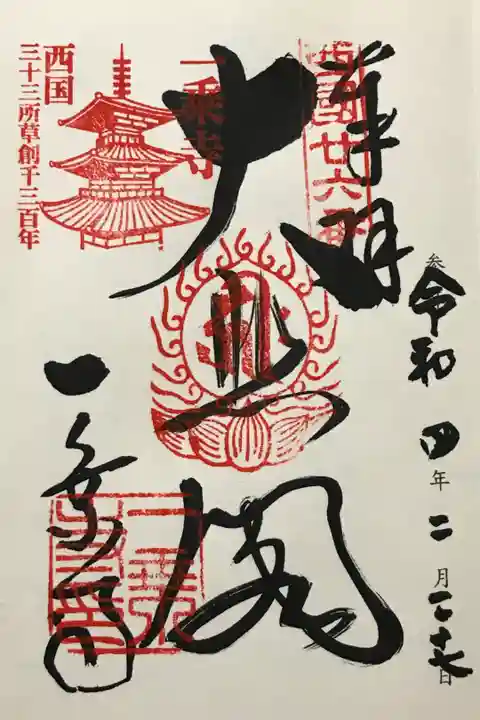 奉拝
西國廿六番
令和四年二月二十七日
大悲閣
一乗寺
一乗寺
西国
三十三所草創千三百年